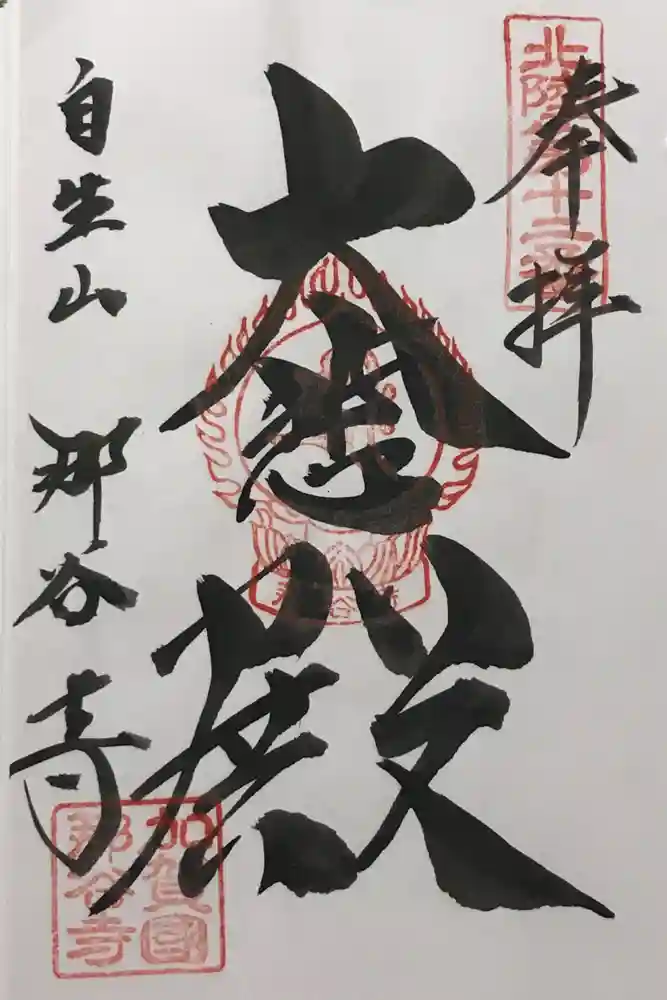 奉拝
北陸第十二番
大悲殿
自生山 那谷寺
加賀國
那谷寺